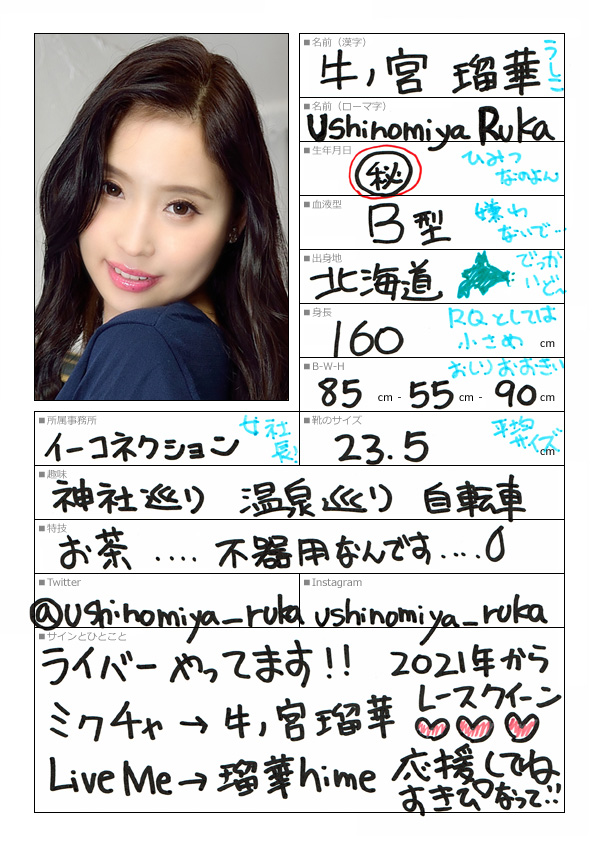 ■名前（漢字）
牛ノ宮 瑠華
うしこ
■名前（ローマ字）
Ushinomiya Ruka
■生年月日
㊙
ひみつ
なのよん
■血液型
B型
嫌わ
ないで…
■出身地
北海道
でっか
いどー
■身長
160 cm
RQとしては
小さめ
■B-W-H
85 cm - 55 cm - 90 cm
おしりおおきい
■所属事務所
イーコネクション
女社
長!
■靴のサイズ
23.5 cm
平均
サイズ
■趣味
神社巡り 温泉巡り 自転車
■特技
お茶 .... 不器用なんです....
■Twitter
@ushinomiya_ruka
■Instagram
ushinomiya_ruka
■サインとひとこと
ライバーやってます!!
ミクチャ→牛ノ宮瑠華
LiveMe→瑠華hime
2021年から
レースクイーン
応援してね
すきぴなって